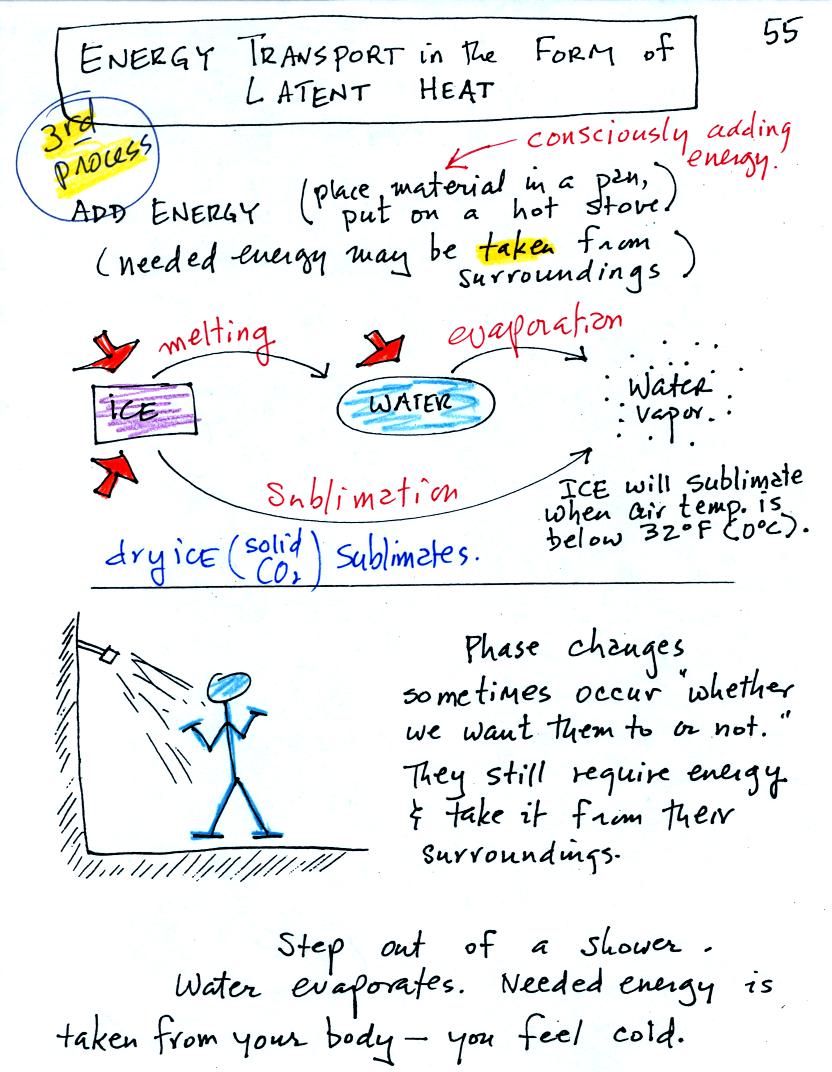 55
ENERGY TRANSPORT in the FORM of
LATENT HEAT
3rd
process
consciously adding
energy.
ADD ENERGY (place material in a pan,
put on a hot stove)
(needed energy may be taken from
surroundings)
melting
evaporation
ICE
WATER
Water
vapor.
Sublimation
ICE will sublimate
when air temp. is
below 32°F (0°C).
dry ICE (solid
CO2) sublimates.
Phase changes
sometimes occur "whether
we want them to or not."
They still require energy
& take it from their
surroundings.
Step out of a shower.
Water evaporates. Needed energy is
taken from your body – you feel cold.